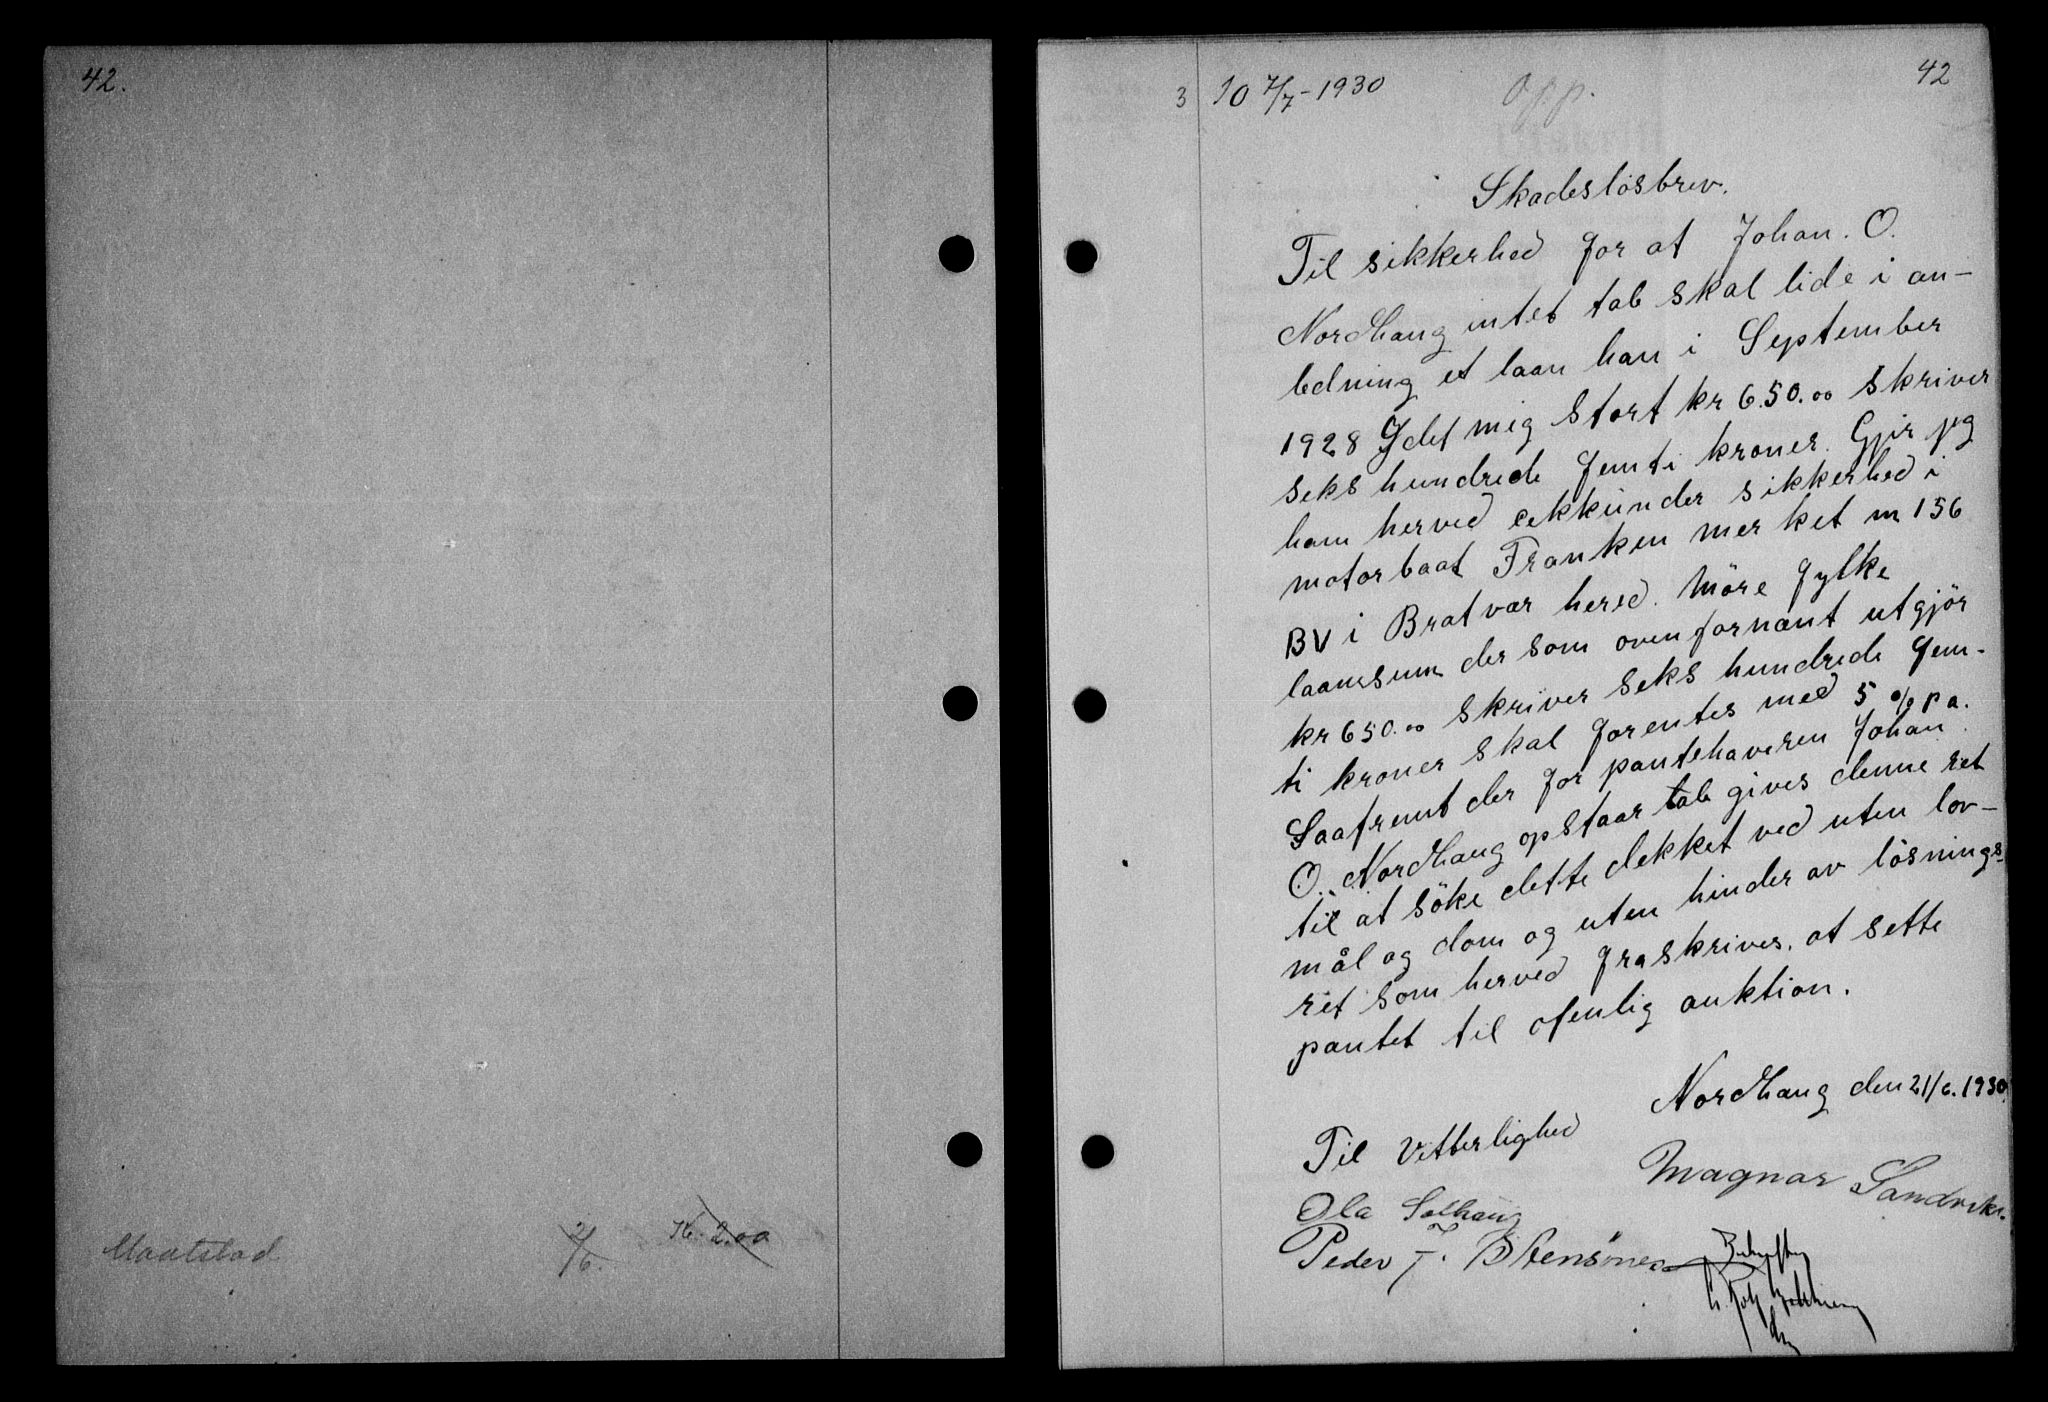 42.
Maatstad
2/6.
K. 2.00
42
3
10 7/7-1930
Opp.
Skadeslösbrev.
Til sikkerhed for at Johan. O.
Nordhaug intet tab skal lide i an-
ledning et laan han i September
1928 Ydet mig stort kr 650.00 skriver
seks hundrede femti kroner. Gjir jeg
ham herved sikkerhed i
motorbaat Franken merket m 156
BV i Bratvær hered. Möre fylke
laanesum der som ovenfornævnt utgjör
kr 650.00 skriver seks hundrede fem-
ti kroner skal forentes med 5 % p a.
Saafremt der for pantehaveren Johan
O. Nordhaug opstaar tab gives denne ret
til at söke dette dekket ved uten lov-
mål og dom og uten hinder av lösnings-
ret som herved fraskrives. at sette
pantet til ofenlig auktion.
Nordhaug den 21/6. 1930.
Til Vitterlighed
Magnar Sandvik.
Ola Solhaug
Peder J. Stensönes